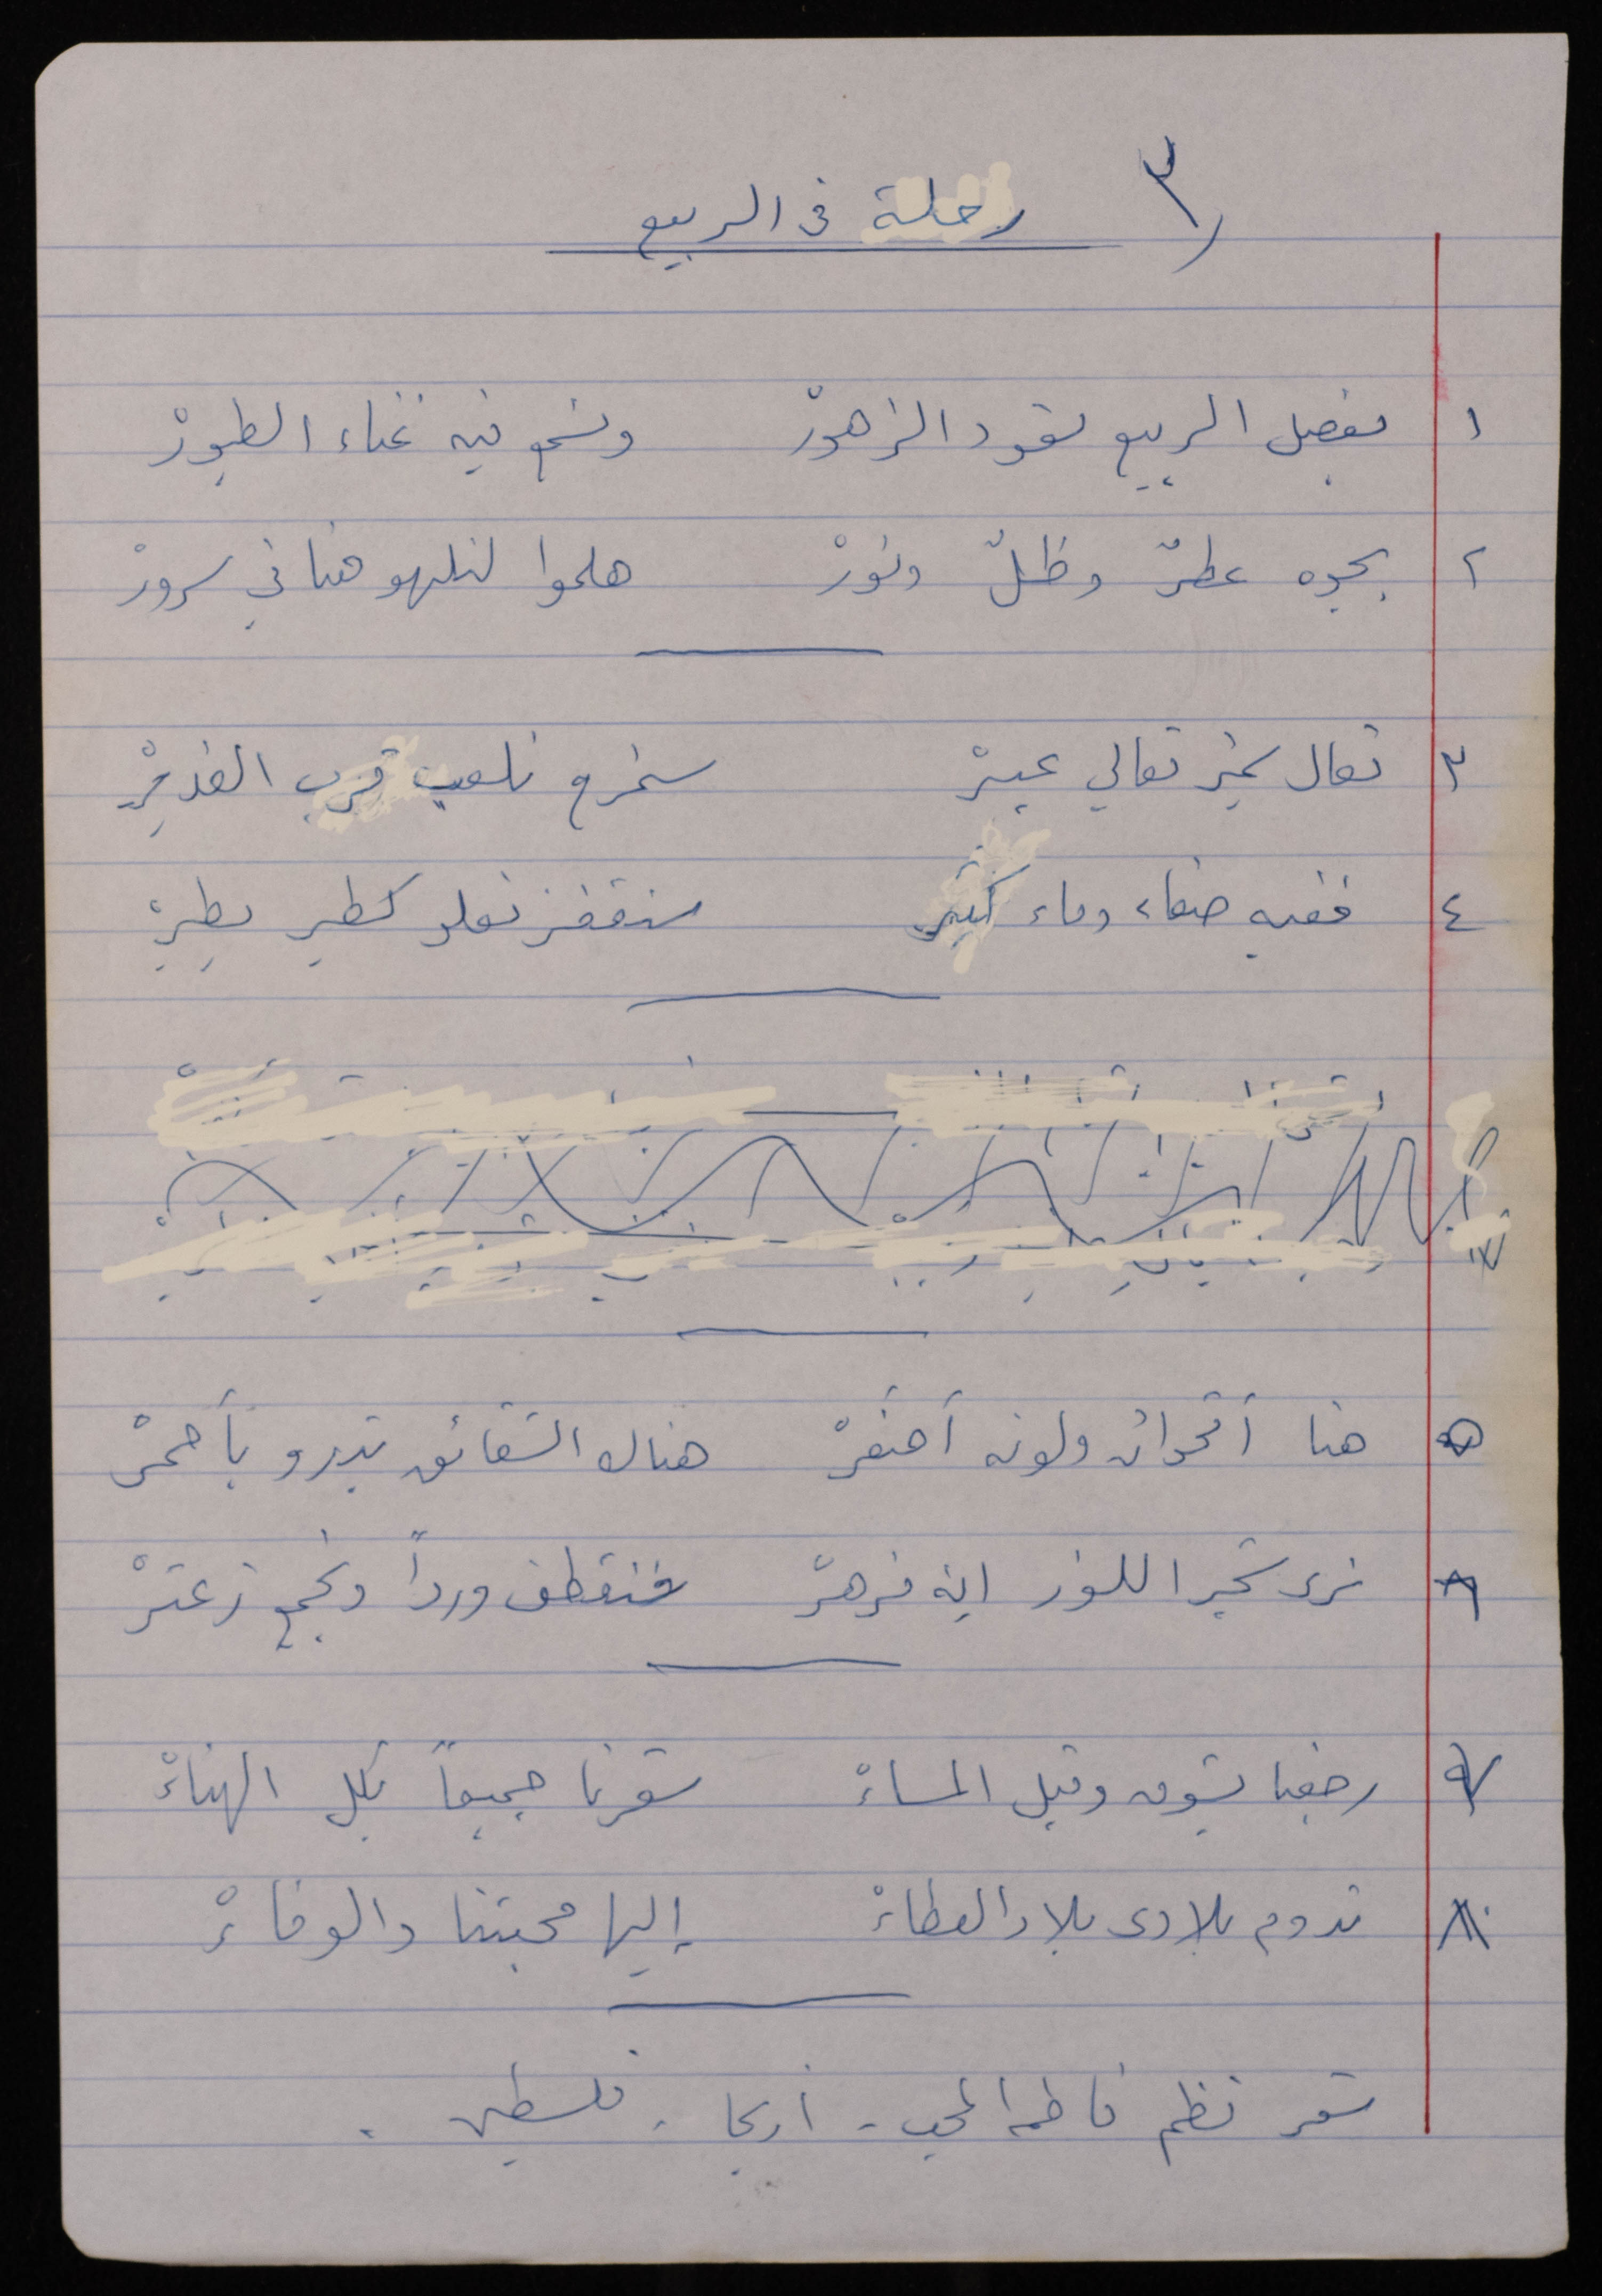 ٣/ رحلة في الربيع
١ بفصل الربيع تعود الزهورْ ونسمع فيه غناء الطيورْ
٢ بجوه عطرٌ وظلٌ ونورْ هلموا لنلهو هنا في سرورْ
٣ تعال سمير تعالي عبيرْ سنخرج نلعب قرب الغديرْ
٤ ففيه صفاء وماء كثير سنقفز نعلو كطير يطيرْ
٥ هنا أقحوان ولونه أصفرْ هناك الشقائق تبدو بأحمرْ
٦ نرى شجر اللوز إنه مزهرْ فنقطف ورداً ونجمع زعترْ
٧ رجعنا بشوق وقبل المساءْ شعرنا جميعاً بكل الهناءْ
٨ تدوم بلادي بلاد العطاءْ إليها محبتنا والوفاءْ
شعر نظم فاطمة المحب - أريحا - فلسطين .